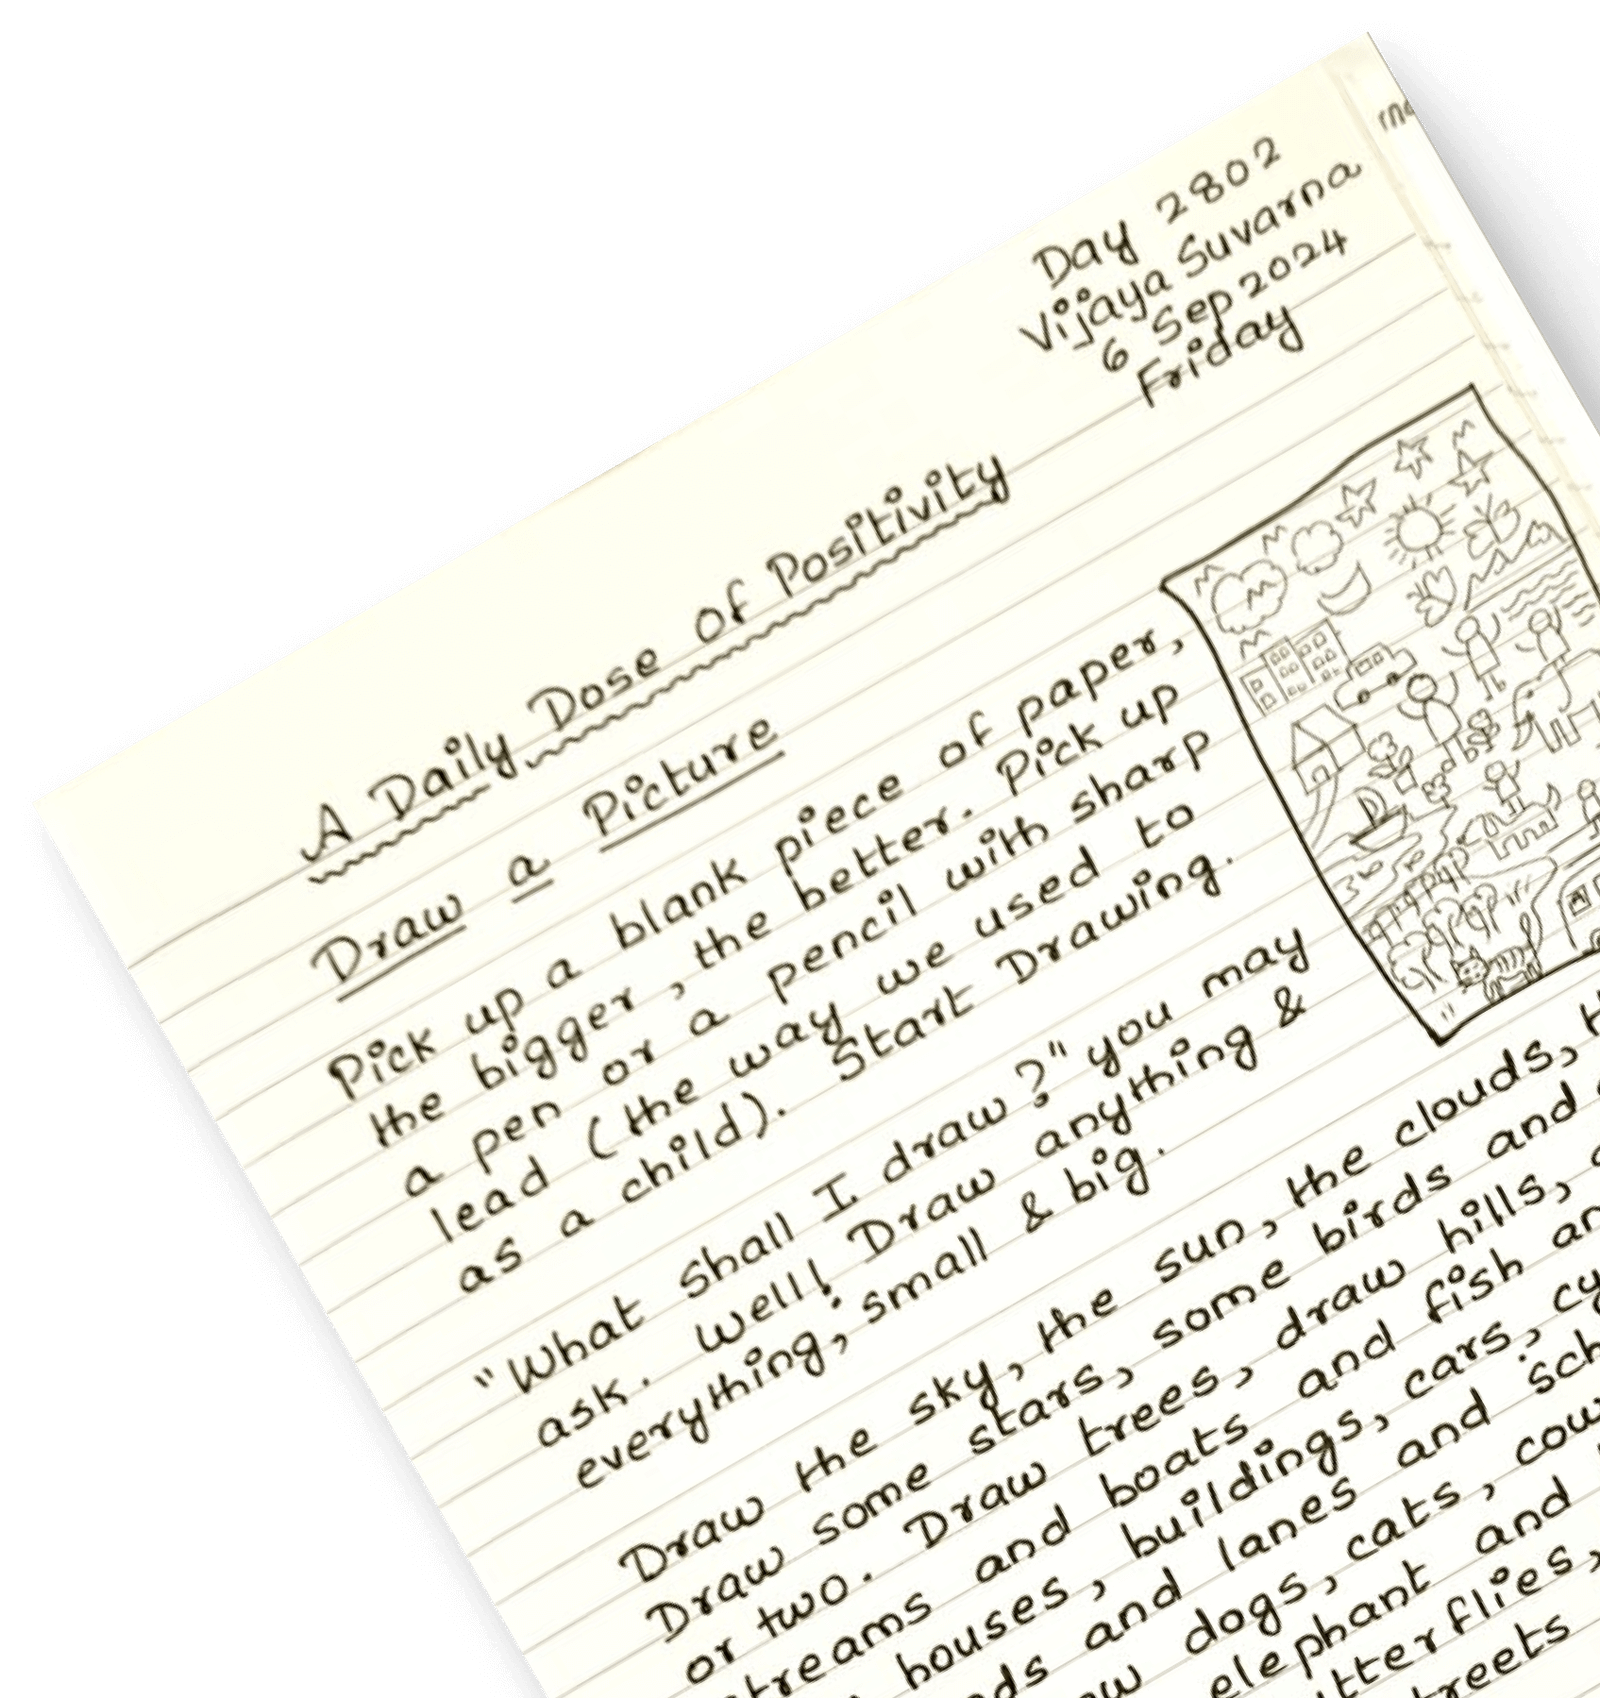 Day 2802
Vijaya Suvarna
6 Sep 2024
Friday
A Daily Dose of Positivity
Draw a Picture
Pick up a blank piece of paper,
the bigger, the better. Pick up
a pen or a pencil with sharp
lead (the way we used to
as a child). Start Drawing.
"What shall I draw?" you may
ask. Well! Draw anything &
everything; small & big.
Draw the sky, the sun, the clouds,
Draw some stars, some birds and
or two. Draw trees, draw hills,
streams and boats and fish
houses, buildings, cars,
and lanes and
dogs, cats,
elephant and